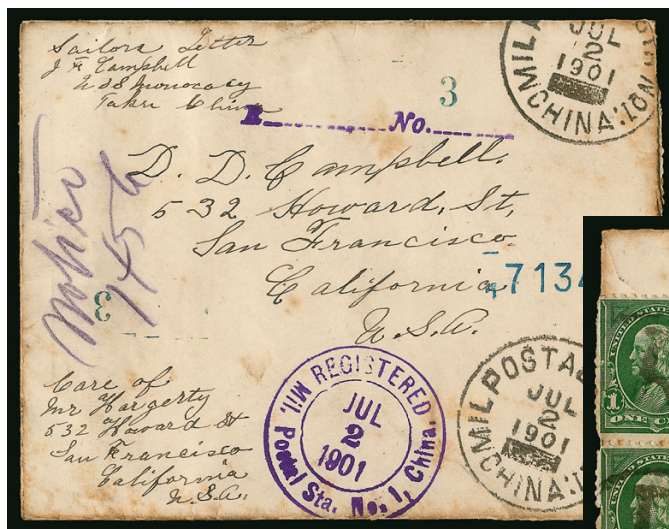 Sailors Letter
J F Campbell
U S S Monocacy
Taku China
3
R No.
MIL POSTAL
JUL
2
1901
CHINA
D. D. Campbell.
532 Howard, St,
San Francisco
California
U.S.A.
7134
3
Care of
Mr Hargerty
532 Howard St
San Francisco
California
U.S.A.
MIL. REGISTERED
JUL
2
1901
Postal Sta. No. 1, China.
MIL POSTAL
JUL
2
1901
CHINA
UNITED STATES
1
ONE CE
UNITED STATES